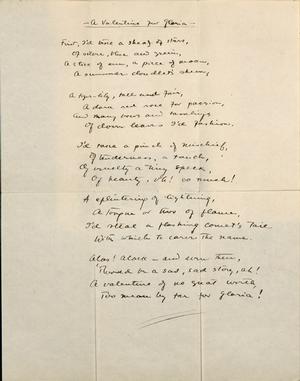 — A Valentine for Gloria —
First, I'd take a sheaf of stars,
Of silver, blue and green,
A slice of sun, a piece of moon,
A summer cloudlet's sheen,
A tiger-lily, tall and fair,
A dark red rose for passion,
And many bows and
Of down leaves I'd fashion.
I'd take a pinch of mischief,
Of tenderness, a touch,
Of cruelty a tiny speck,
Of beauty, Oh! so much!
A splintering of lightning,
A tongue or two of flame,
I'd steal a flashing comet's tail
With which to carve the name.
Alas! Alack — and even then,
'Twould be a sad, sad story, ah!
A valentine of no great worth,
Too mean by far for Gloria!